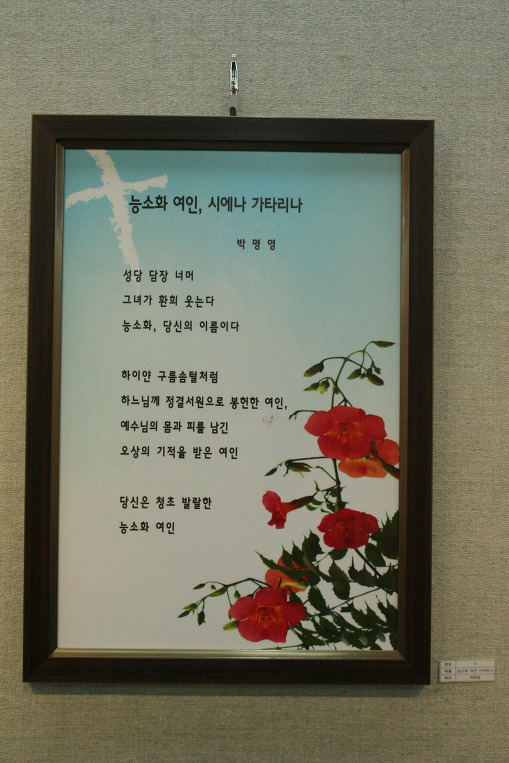 능소화 여인, 시에나 가타리나
박 명 영
성당 담장 너머
그녀가 환희 웃는다
능소화, 당신의 이름이다
하이얀 구름솜털처럼
하느님께 정결서원으로 봉헌한 여인,
예수님의 몸과 피를 남긴
오상의 기적을 받은 여인
당신은 청초 발랄한
능소화 여인
시
능소화 여인 가타리나
박명영